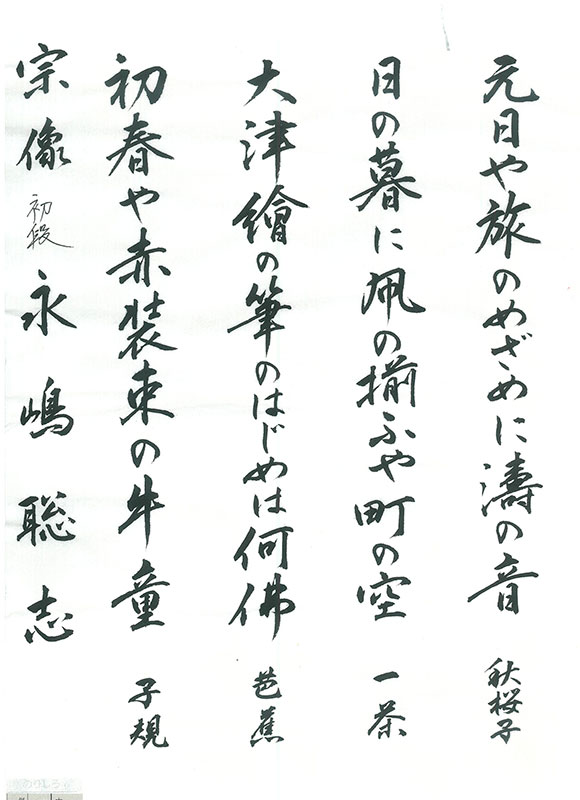 元日や旅のめざめに濤の音 秋桜子
日の暮に凧の揃ふや町の空 一茶
大津繪の筆のはじめは何佛 芭蕉
初春や赤装束の牛童 子規
宗像 初段 永嶋聡志